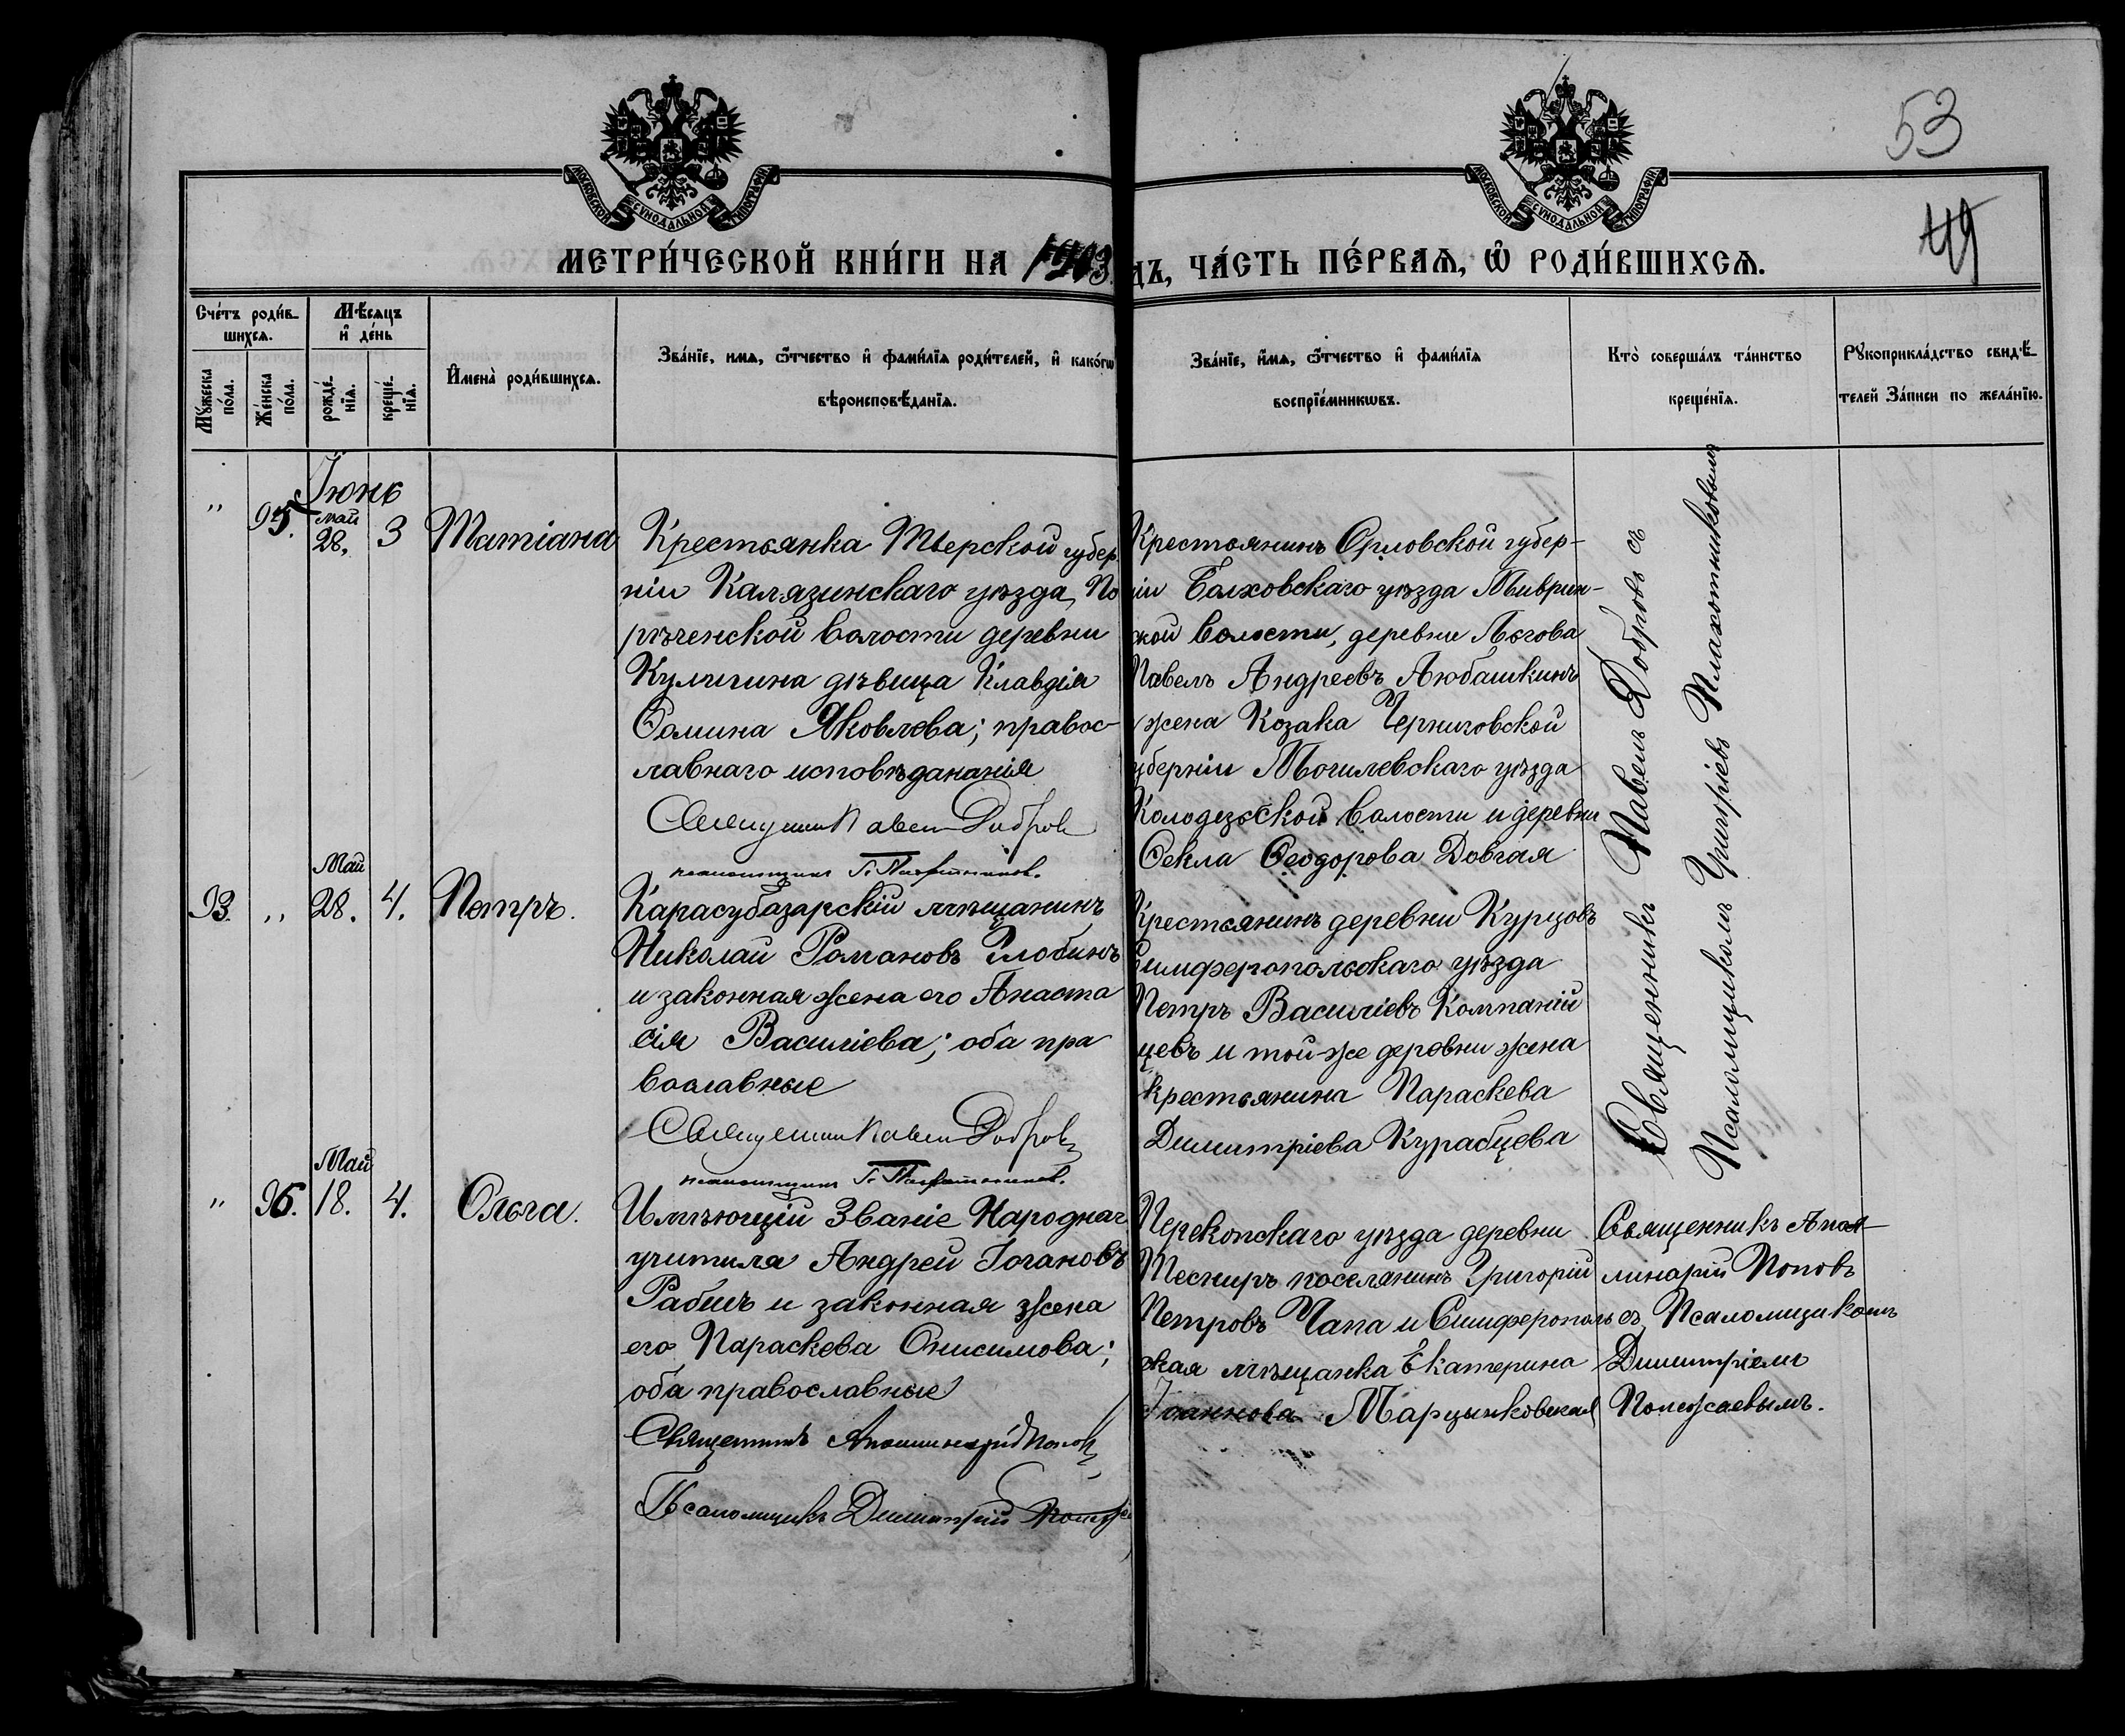 53
49
МОСКОВСКОЙ СѴНОДАЛЬНОЙ ТИПОГРАФІИ
МОСКОВСКОЙ СѴНОДАЛЬНОЙ ТИПОГРАФІИ
МЕТРИ́ЧЕСКОЙ КНИ́ГИ НА 1903 ДЪ, ЧА́СТЬ ПЕ́РВАѦ, Ѡ҆ РОДИ́ВШИХСѦ.
Сче́тъ роди́в-
шихсѧ.
Мѣсяцъ
и҆ де́нь
Мꙋжеска по́ла.
Же́нска по́ла.
рожде́-нїѧ.
креще́-нїѧ.
И҆мена̀ роди́вшихсѧ.
Зва́нїе, имѧ, ѻ҆́тчество и҆ фами́лїѧ роди́телей, и҆ како́гѡ
вѣроисповѣ́данїѧ.
Зва́нїе, и҆́мѧ, ѻ҆́тчество и҆ фами́лїѧ
воспрїе́мникѡвъ.
Кто̀ соверша́лъ та́инство
креще́нїѧ.
Рꙋкоприкла́дство свидѣ́-
телей За́писи по жела́нїю.
Іюнь
" 95. май 28. 3 Татіана
Крестьянка Тверской губер
ніи Калязинскаго уѣзда, По
рѣченской волости деревни
Кулигина дѣвица Клавдія
Ѳомина Яковлева; правос-
лавнаго исповѣдананія
Священник Павел Добров
псаломщикъ Г. Плахотниковъ.
Крестьянинъ Орловской губер-
ніи Болховскаго уѣзда
ской волости, деревни Льгова
Павелъ Андреевъ Любашкинъ
жена Козака Черниговской
уберніи Могилевскаго уѣзда
Колодезской волости и деревни
Ѳекла Ѳеодорова Довгая
Священникъ Павелъ Добровъ съ
Псаломщикомъ Григоріевъ Плахотниковымъ
93. " Май 28. 4. Петръ.
Карасубазарскій мѣщанинъ
Николай Романовъ Злобинъ
и законная жена его Анаста
сія Василіева; оба пра
вославные
Священник Павел Добров
псаломщикъ Г. Плахотниковъ.
Крестьянинъ деревни Курцовъ
Симферопольскаго уѣзда
Петръ Василіевъ Компаній
цевъ и той-же деревни жена
крестьянина Параскева
Димитріева Курабцева
" 96. Май 18. 4. Ольга.
Имѣющій Званіе Народнаг
учителя Андрей Іоановъ
Рабичъ и законная жена
его Параскева Онисимова;
оба православные
Священникъ Аполлинарій Попов
Псаломщикъ Димитрій
Перекопскаго уѣзда деревни
поселянинъ Григорій
Петровъ Чапа и Симферополь
ская мѣщанка Екатерина
Іоаннова Марцынковская
Священникъ Апол-
линарій Поповъ
съ Псаломщикомъ
Димитріемъ
Понежаевымъ.